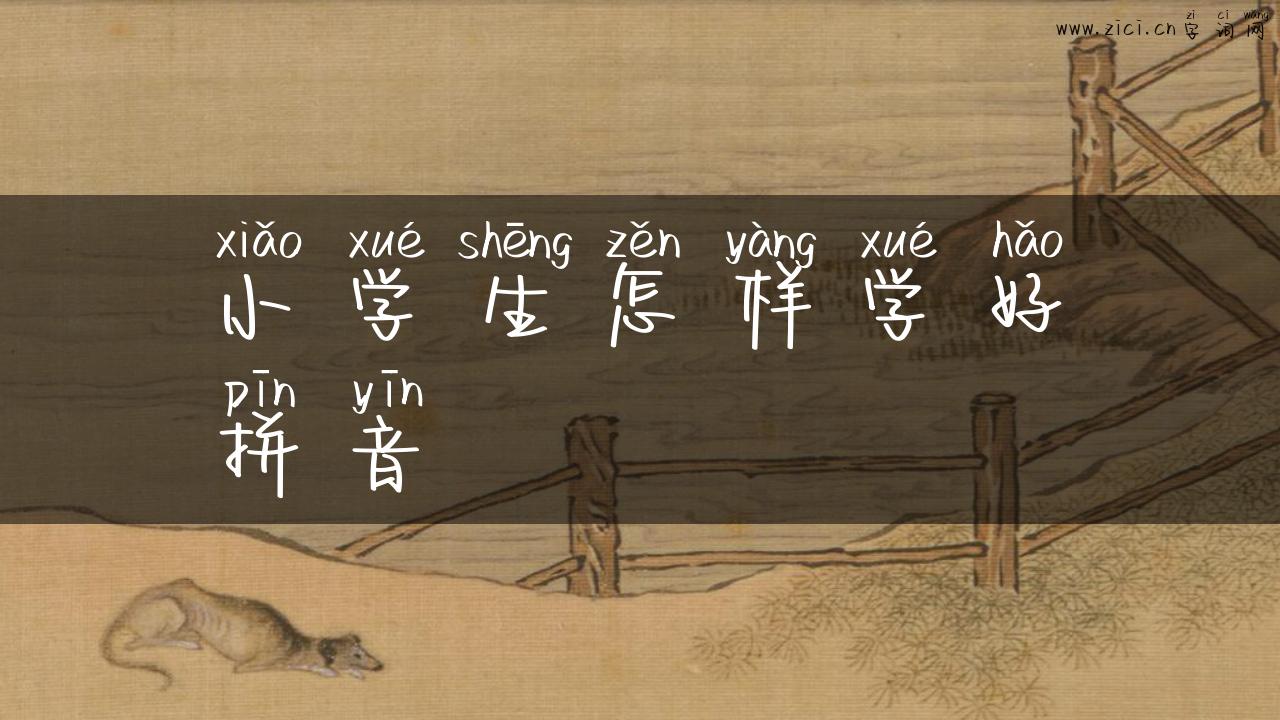 zì cí wǎng
www.zici.cn 字词网
xiǎo xué shēng zěn yàng xué hǎo
小学生怎样学好
pīn yīn
拼音